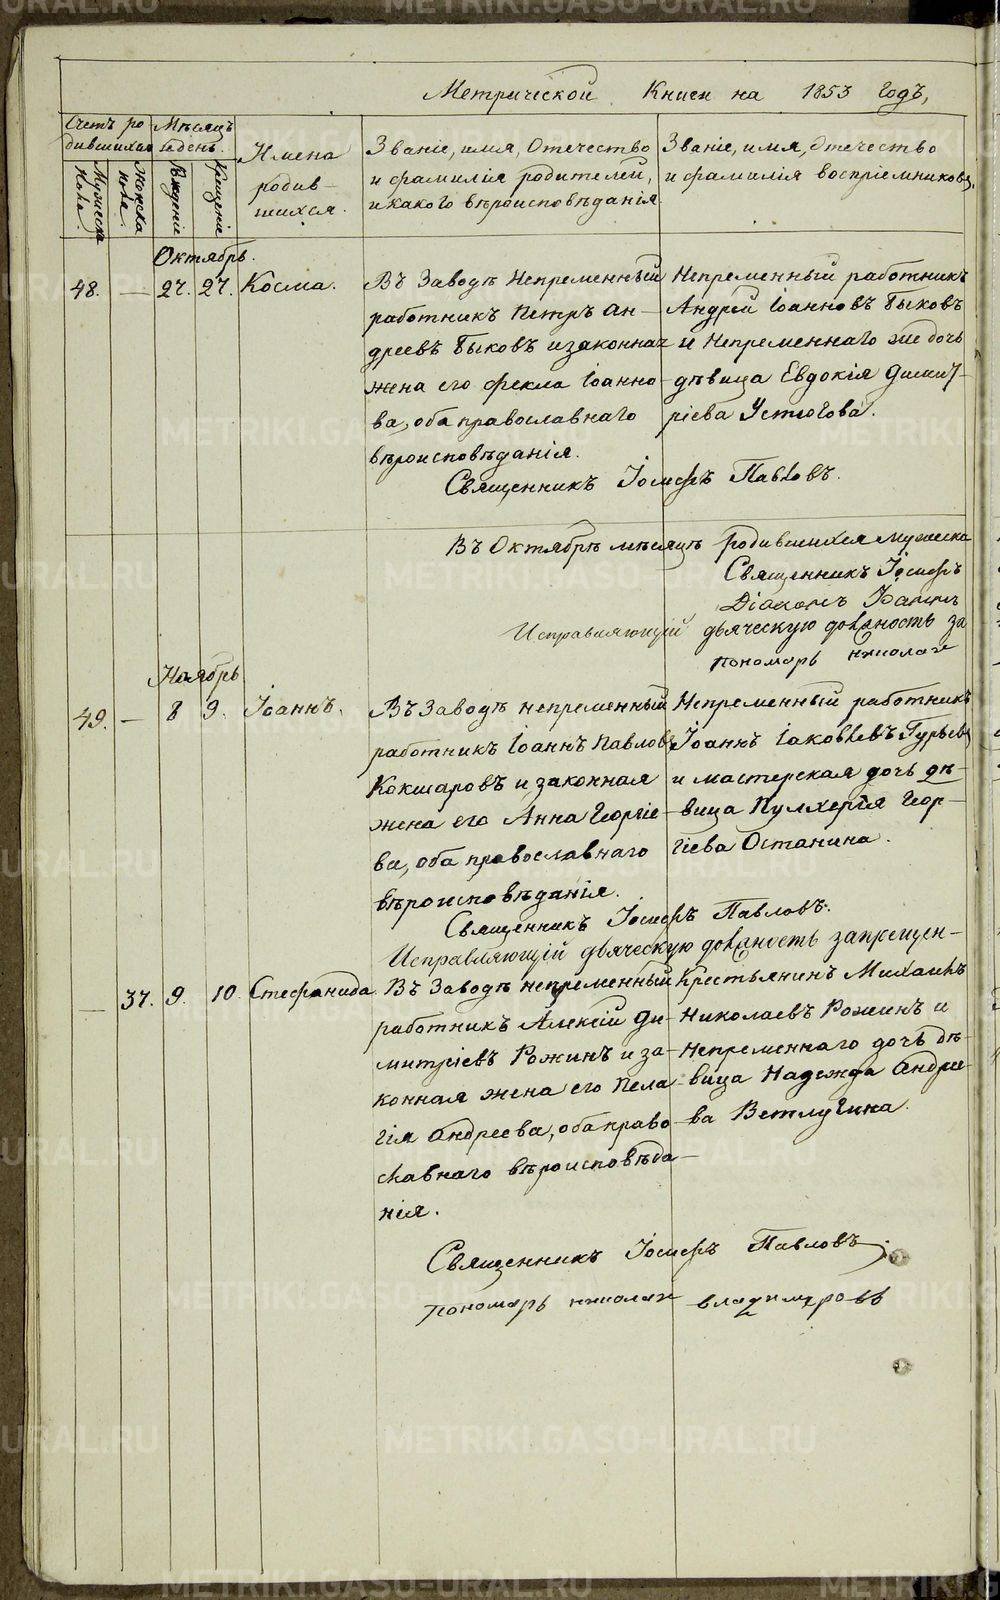 Метрической Книги на 1853 годъ,
Счетъ ро-
дившихся
Мѣсяцъ
и день.
Мужеска
пола.
Женска
пола.
Рожденіе
Крещеніе
Имена
родив-
шихся.
Званіе, имя, Отечество
и фамилія родителей,
и какого вѣроисповѣданія
Званіе, имя, Отечество
и фамилія воспріемниковъ,
Октябрь.
48. — 27. 27. Косма.
Въ Заводѣ Непременный
работникъ Петръ Ан-
дреевъ Быковъ и законная
жена его Фекла Іоанно-
ва, оба православнаго
вѣроисповѣданія.
Непременный работникъ
Андрей Іоанновъ Быковъ
и Непременнаго же дочь
дѣвица Евдокія Димит-
ріева Устюгова.
Священникъ Іосифъ Павловъ.
Въ Октябрѣ мѣсяцѣ родившихся мужеска
Священникъ Іосифъ
Діаконъ Іоаннъ
Исправляющій дьяческую должность за
пономарь николай
Ноябрь
49. — 8 9. Іоаннъ.
Въ Заводѣ непременный
работникъ Іоаннъ Павловъ
Кокшаровъ и законная
жена его Анна Георгіе-
ва, оба православнаго
вѣроисповѣданія.
Непременный работникъ
Іоаннъ Іаковлевъ Гурьевъ
и мастерская дочь дѣ-
вица Пулхерія Геор-
гіева Останина.
Священникъ Іосифъ Павловъ.
Исправляющій дьяческую должность запрещен-
— 37. 9. 10. Стефанида
Въ Заводѣ непременный
работникъ Алексій Ди-
митріевъ Рожинъ и за-
конная жена его Пела-
гія Андреева, оба право-
славнаго вѣроисповѣда-
нія.
Крестьянинъ Михаилъ
Николаевъ Рожинъ и
Непременнаго дочь дѣ-
вица Надежда Андрее-
ва Ветлугина.
Священникъ Іосифъ Павловъ.
пономарь николай владимировъ
METRIKI.GASO-URAL.RU